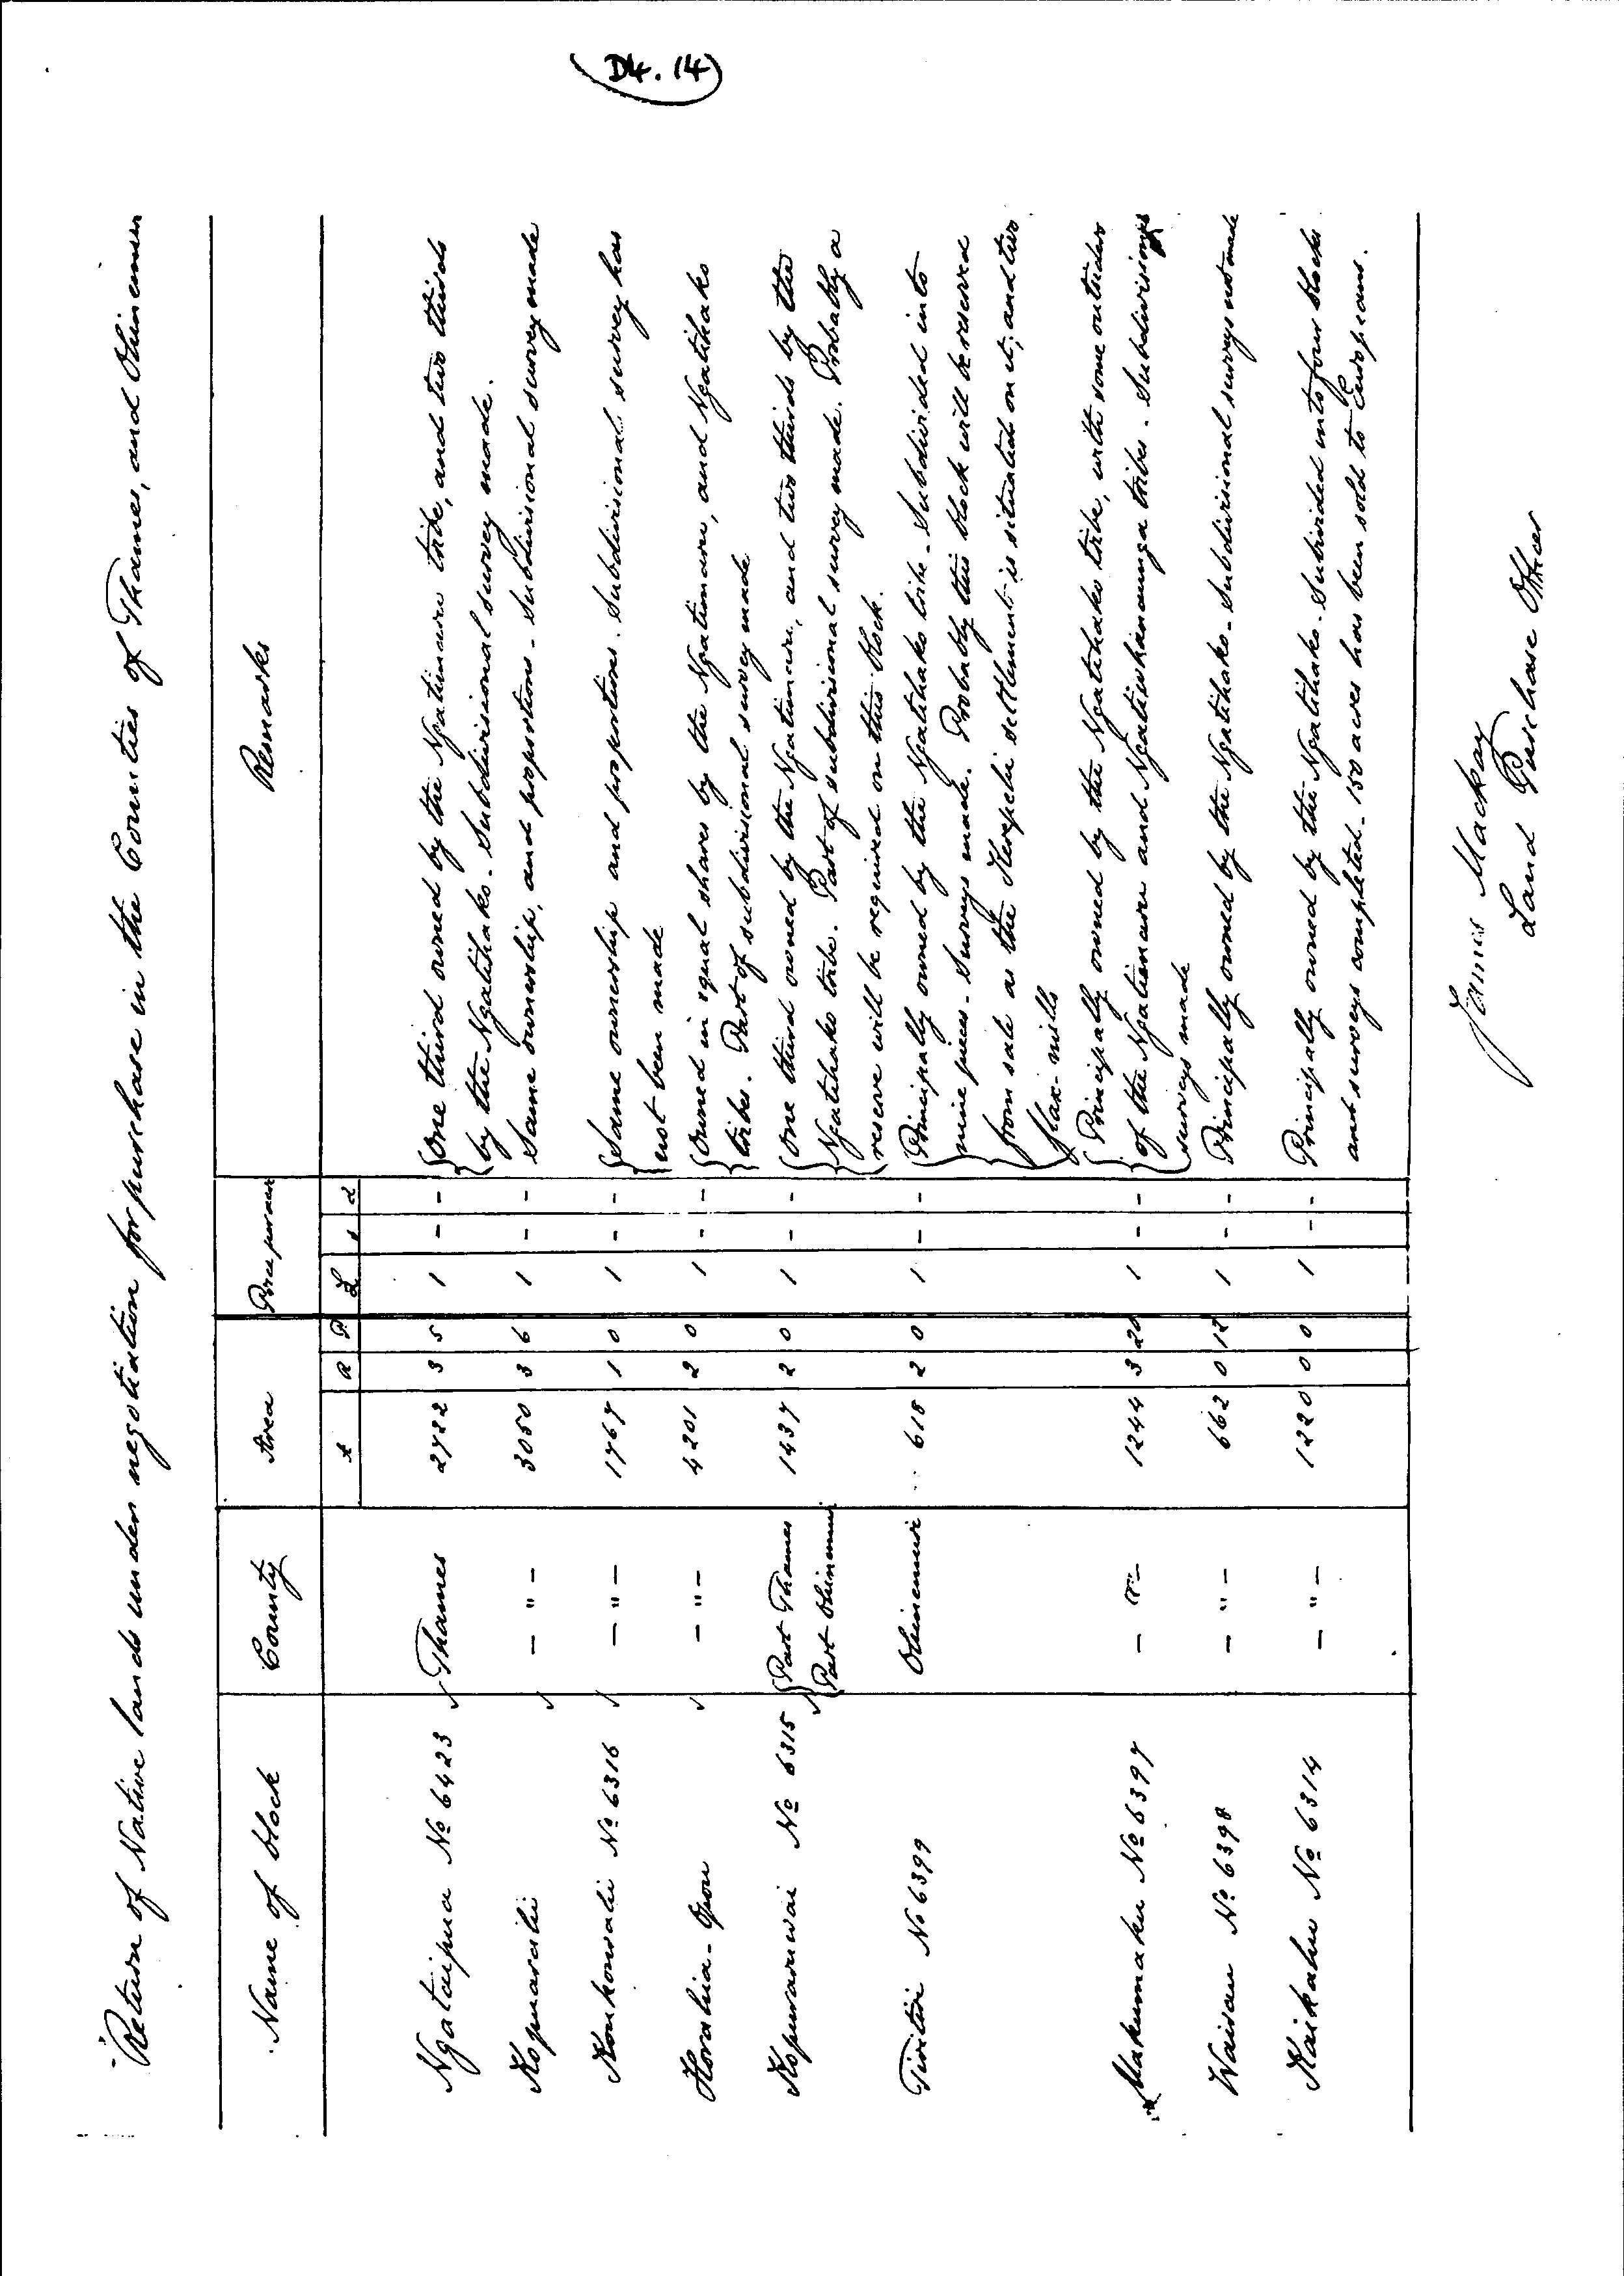 D4. 14
Return of Native lands under negotiation for purchase in the Counties of Thames, and Ohinemuri
Name of block County Area Price per acre Remarks
A R P £ s d
Ngataipua No 6423 Thames 2722 3 5 1 - - One third owned by the Ngatimaru tribe, and two thirds
by the Ngatihako. Subdivisional survey made.
Kopuarahi - " - 3050 3 6 1 - - Same ownership, and proportions. Subdivisional survey made
Koukourahi No 6316 - " - 1767 1 0 1 - - Same ownership and proportions. Subdivisional survey has
not been made
Horahia-Opou - " - 4201 2 0 1 - - Owned in equal shares by the Ngatimaru, and Ngatihako
tribes. Part of subdivisional survey made
Kopuraruwai No 6315 Part Thames 1437 2 0 1 - - One third owned by the Ngatimaru, and two thirds by the
Part Ohinemuri Ngatihako tribe. Part of subdivisional survey made. Probably a
reserve will be required on this block.
Tiritiri No 6399 Ohinemuri 618 2 0 1 - - Principally owned by the Ngatihako tribe. Subdivided into
nine pieces. Surveys made. Probably this block will be reserved
from sale as the Kerepehi settlement is situated on it; and two
flax-mills
Makumaku No 6397 - " - 1244 3 20 1 - - Principally owned by the Ngatihako tribe, with some outsiders
of the Ngatimaru and Ngatiwhanaunga tribes. Subdivisional
surveys made
Waisau No 6398 - " - 662 0 12 1 - - Principally owned by the Ngatihako. Subdivisional surveys not made
Kaikahu No 6314 - " - 1220 0 0 1 - - Principally owned by the Ngatihako. Subdivided into four blocks
and surveys completed. 150 acres has been sold to Europeans.
James Mackay
Land Purchase Officer